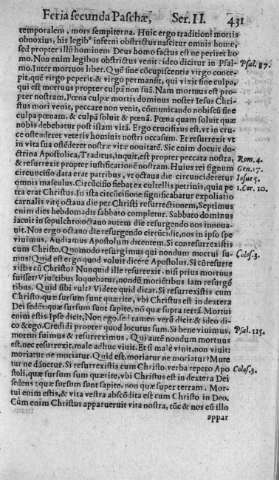 Feria secunda Paschæ, Ser. II. 431
temporalem, mors sempiterna. Huic ergo traditioni mortis
obnoxius, his legibus inferni obstrictus nascitur omnis homo,
sed propter illū hominem Deus homo factus est ne periret homo.
Non enim legibus obstrictus venit: ideo dicitur in Psal- Psal. 87.
mo, Inter mortuos liber. Quē sine cōcupiscentia virgo concepit,
quē virgo peperit & virgo permansit, qui vixit sine culpa,
qui est mortuus propter culpā non suā. Nam mortuus est propter
nostram. Pœna culpæ mortis dominus noster Iesus Christus
mori venit, peccare non venit, communicando nobiscū sine
culpa pœnam, & culpā soluit & pœnā. Quæ pœnam soluit quæ
nobis debebatur post istam vitā. Ergo crucifixus est, vt in cruce
ostenderet veteris hominis nostri occasum. Et resurrexit vt
in vita sua ostēderet nostræ vitæ nouitatē. Sic enim docet doctrina
Apostolica, Traditus, inquit, est propter peccata nostra, Rom. 4.
et resurrexit propter iustificationem nostram. Huius rei signum Gen. 17.
circuncisio data erat patribus, vt octaua die circuncideretur Iosue 5.
omnis masculus. Circūcisio fiebat ex cultellis petrinis, quia petra 1. Cor. 10.
erat Christus. In ista circuncisione significabatur expoliatio
carnalis vitę octaua die per Christi resurrectionem, Septimus
enim dies hebdomadis sabbato completur. Sabbato dominus
iacuit in sepulchro octauo autem die resurrexit innouat.
Nos ergo octauo die resurgendo circuncidit, non in ipso spe
viuimus. Audiamus Apostolum dicentem, Si consurrexistis
cum Christo. Quomodo resurgimus qui nondum mortui su- Coloss. 3.
mus? Quid est ergo quod voluit dicere Apostolus. Si cōsurrexistis
cū Christo? Nonquid ille resurrexit, nisi prius mortuus
fuisset? Viuētibus loquebatur, nondū morientibus iam resurgētibus.
Quid sibi vult? Videte quid dicat. Si resurrexistis cum
Christo quæ sursum sunt quærite, vbi Christus est in dextera
Dei sedēs: quæ sursum sunt sapite, nō quæ supra terrā. Mortui
enim estis. Ipse dicit, Non ego, & tamen verū dicit & ideo dico
& ego. Credidi propter quod locutus sum. Si bene viuimus, Psal. 115.
mortui sumus & resurreximus. Qui autē nondum mortuus
est, nec resurrexit, male adhuc viuit. Et si malè viuit, non viuit:
moriatur ne moriatur. Quid est, moriatur ne moriatur? Mutetur
ne dānetur. Si resurrexistis cum Christo, verba repeto Apo- Coloss. 3.
stoli, quæ sursum sunt quærite, vbi Christus est in dextera Dei
sedens: quæ sursum sunt sapite, non quæ super terram. Mortui
enim estis, & vita vestra abscōdita est cum Christo in Deo.
Cùm enim Christus apparuerit vita nostra, tūc & nos cū illo
appar